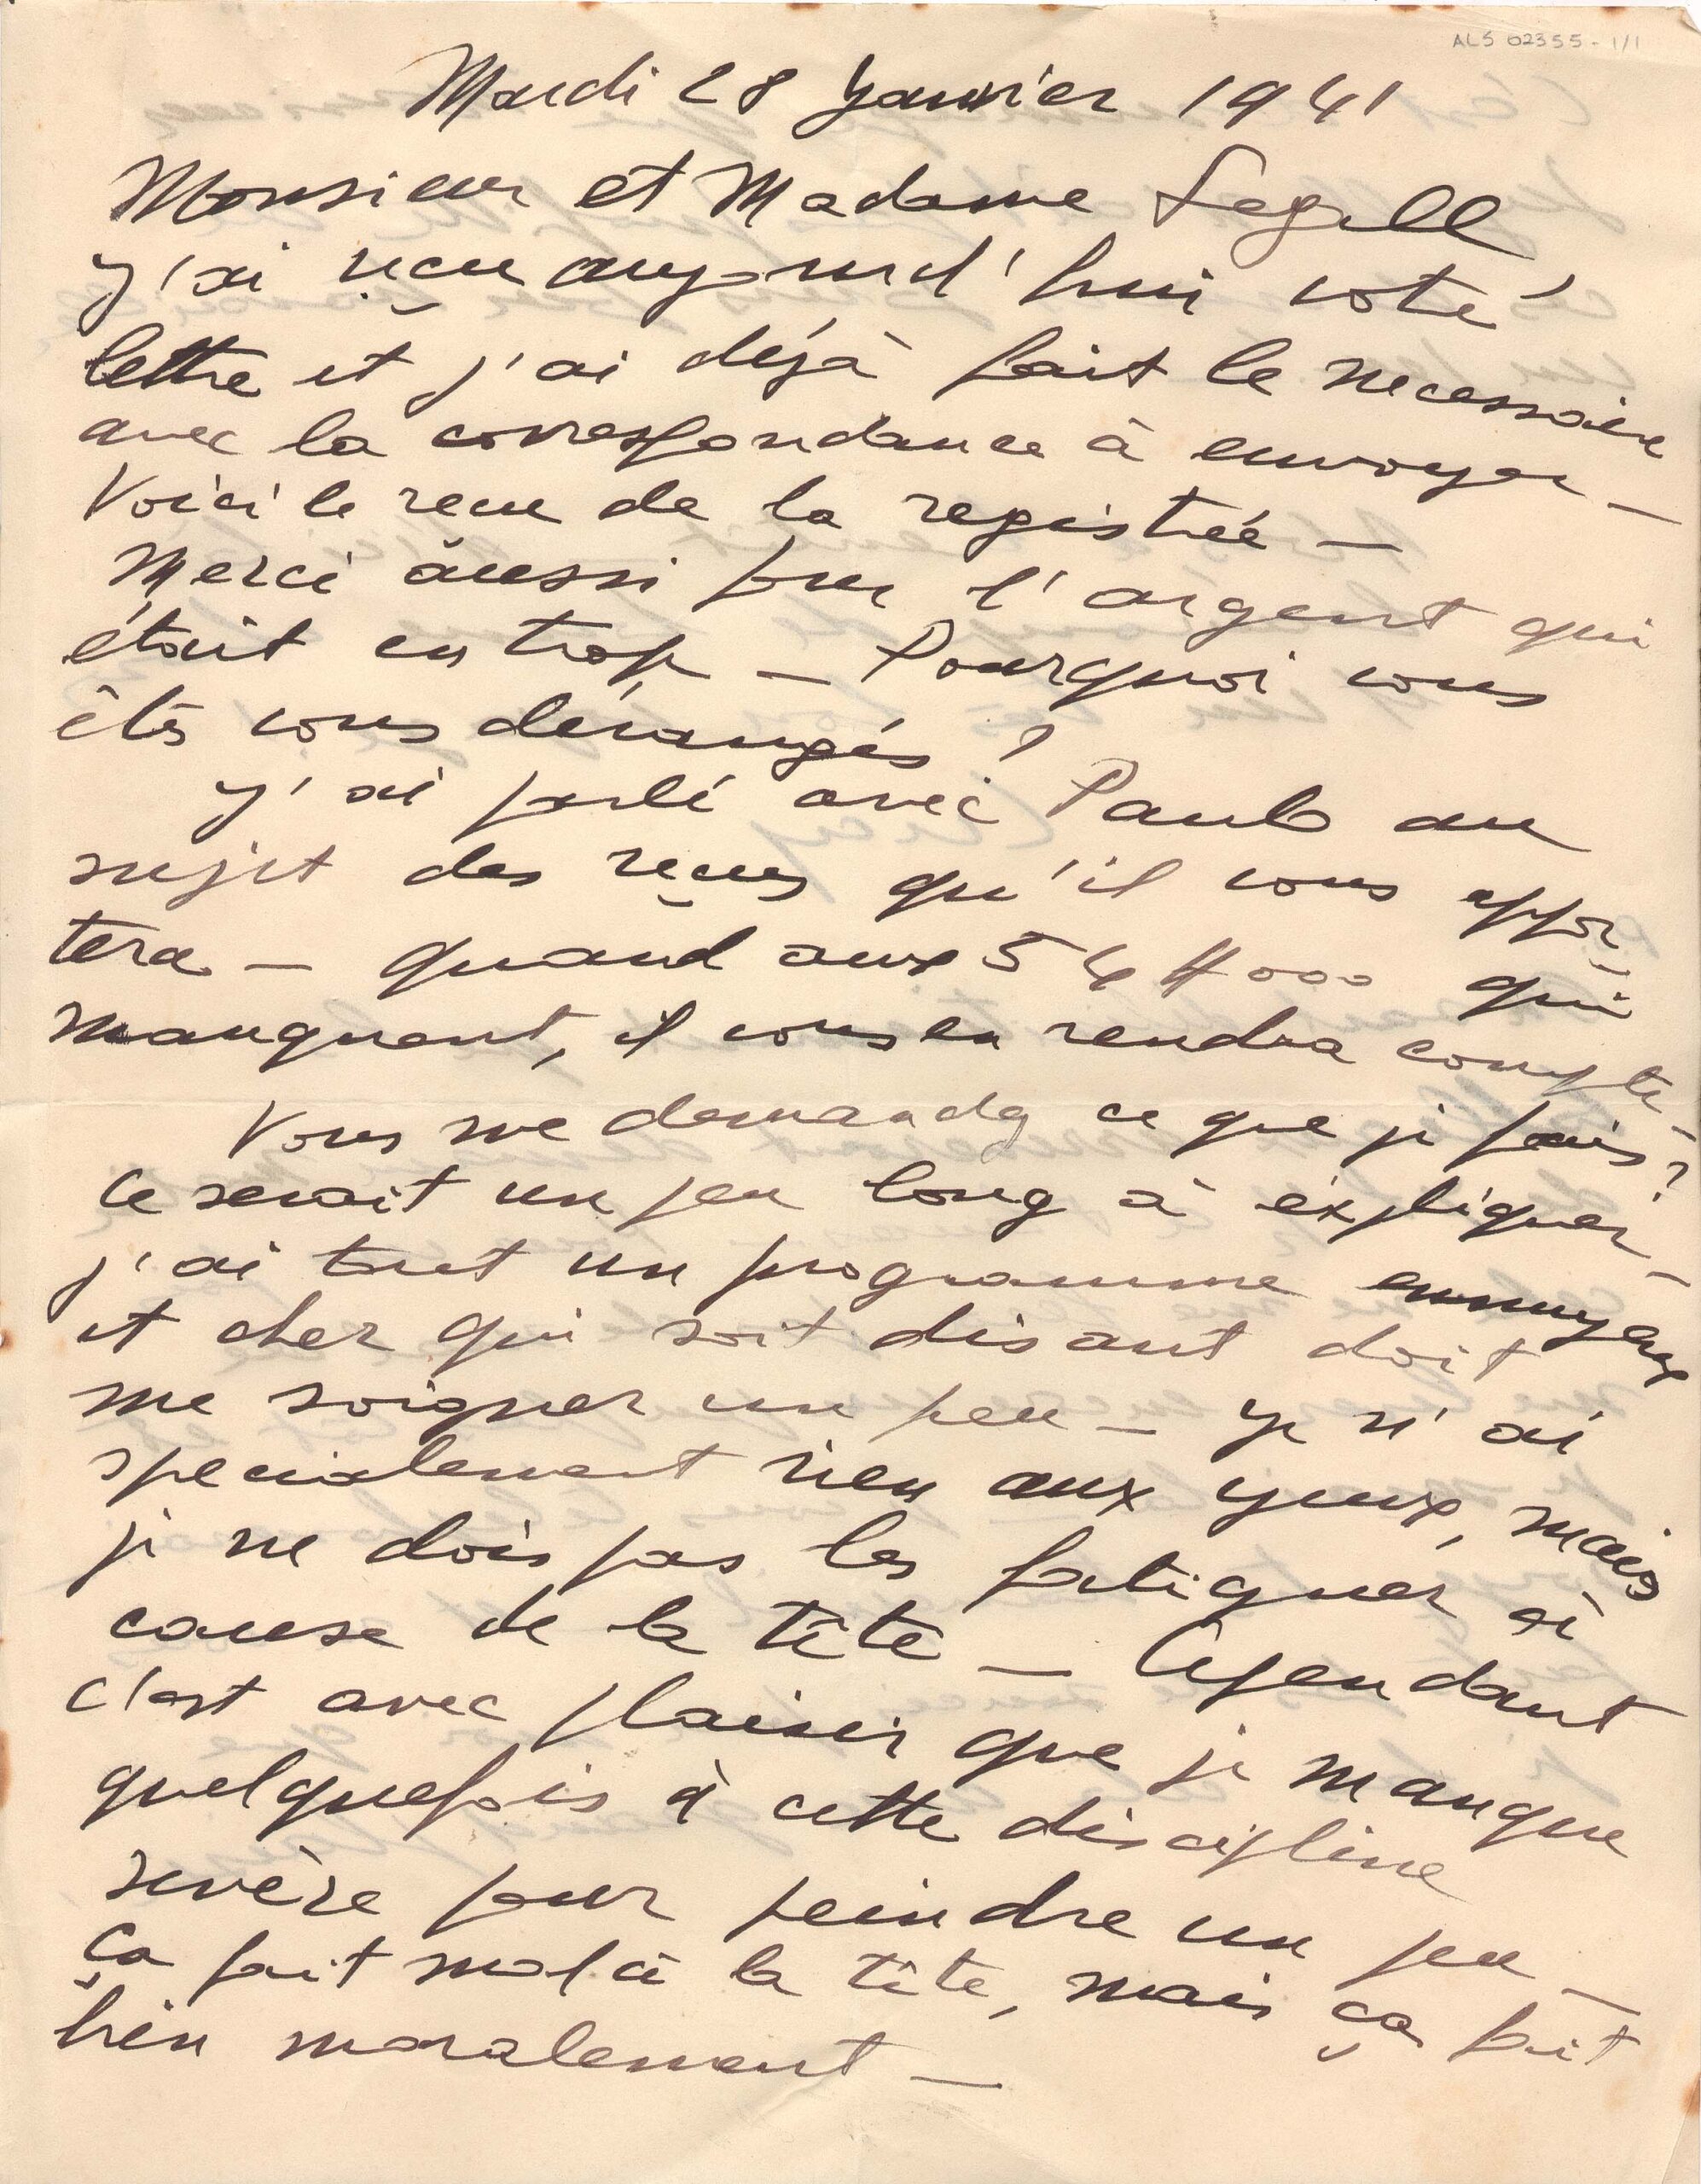 ALS 02355-1/1
Mardi 28 Janvier 1941
Monsieur et Madame Segall
J'ai reçu aujourd'hui votre
lettre et j'ai déjà fait le necessaire
avec la correspondance à envoyer —
Voici le recu de la registrée —
Merci aussi pour l'argent qui
était en trop — Pourquoi vous
êtes vous dérangés ?
J'ai parlé avec Paulo au
sujet des reçus qu'il vous appor-
tera — quand aux 54 $ 000 qui
manquent, il vous en rendra compte —
Vous me demandez ce que je fais ?
Ce serait un peu long à expliquer —
j'ai tout un programme ennuyeux
et cher qui soit disant doit
me soigner un peu — Je n'ai
specialement rien aux yeux, mais
je ne dois pas les fatiguer à
cause de la tête — Cependant
c'est avec plaisir que je manque
quelquefois à cette discipline
sevère pour peindre un peu —
ça fait mal à la tête, mais ça fait
bien moralement —